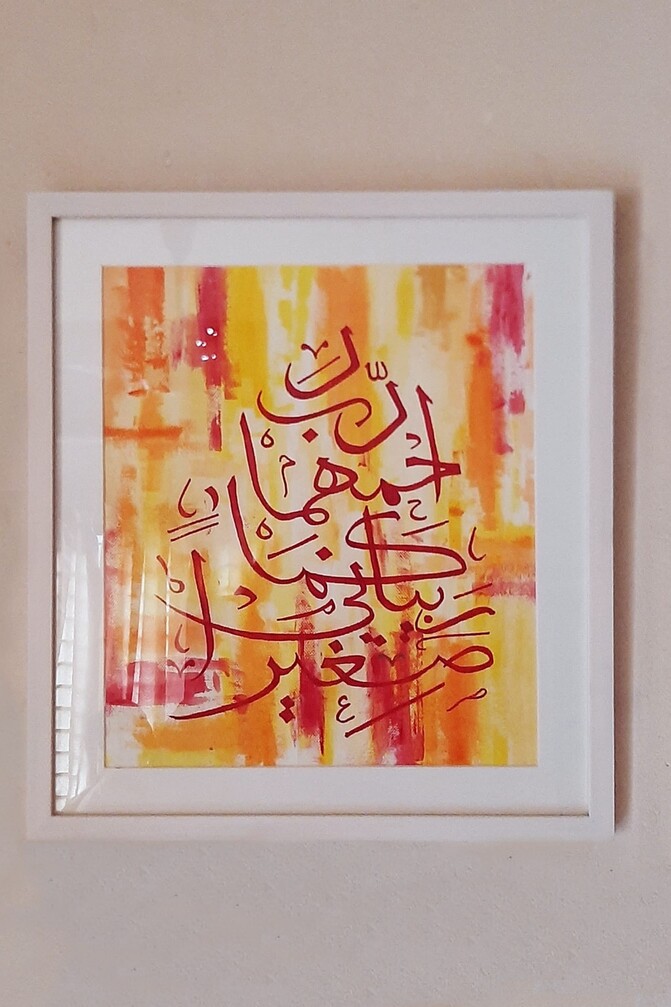 رّب ر
احمهما
كما ربياني
صغيرا